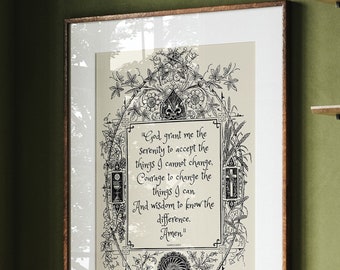 "God, grant me the
serenity to accept the
things I cannot change,
Courage to change the
things I can,
And wisdom to know the
difference.
Amen."